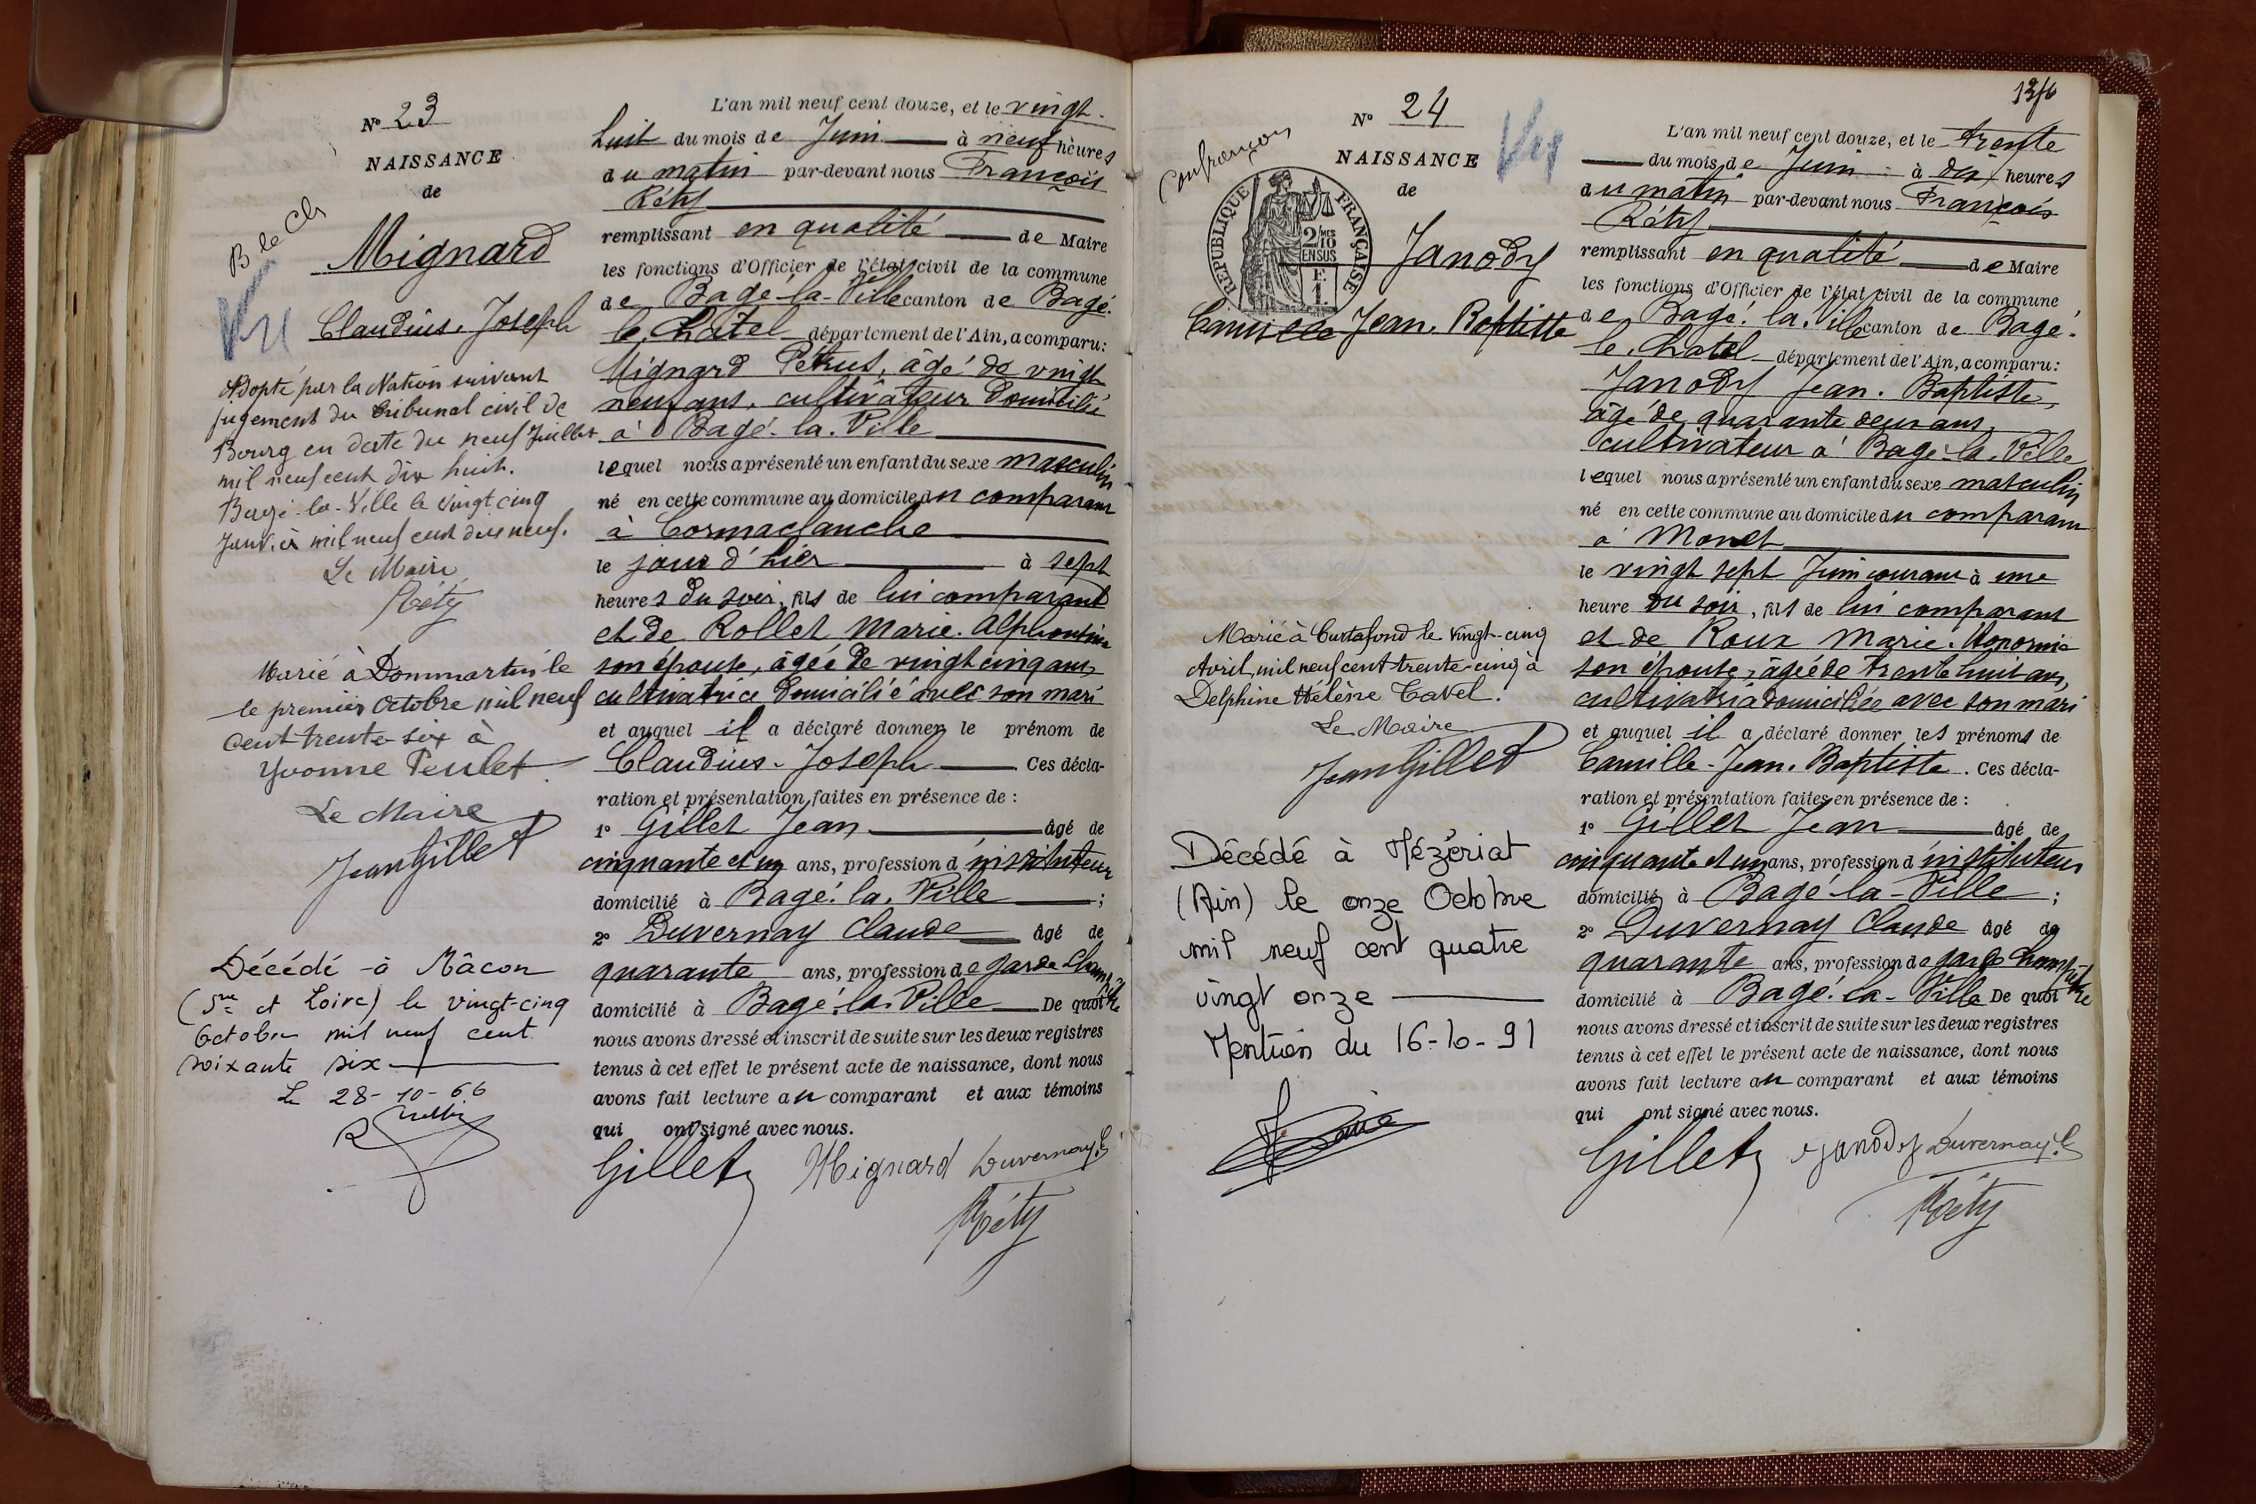 N° 23
NAISSANCE
de
B le Ch
Mignard
Vu
Claudius. Joseph
Adopté par la Nation suivant
jugement du tribunal civil de
Bourg en date du neuf Juillet
mil neuf cent dix huit.
Bagé-la-Ville le vingt cinq
Janvier mil neuf cent dix neuf.
Le Maire
Réty
Marié à Dommartin le
le premier Octobre mil neuf
cent trente-six à
Yvonne Peulet
Le Maire
Jean Gillet
Décédé à Mâcon
(Sne et Loire) le vingt-cinq
Octobre mil neuf cent
soixante six
Le 28-10-66
L'an mil neuf cent douze, et le vingt-
huit du mois de Juin à neuf heures
du matin par-devant nous François
Réty
remplissant en qualité de Maire
les fonctions d'Officier de l'état civil de la commune
de Bagé-la-Ville canton de Bagé-
le-Chatel département de l'Ain, a comparu:
Mignard Pétrus, âgé de vingt
neuf ans, cultivateur domicilié
à Bagé-la-Ville
lequel nous a présenté un enfant du sexe masculin
né en cette commune au domicile du comparant
à Cormaclanche
le jour d'hier à sept
heures du soir, fils de lui comparant
et de Rollet Marie-Alphontine
son épouse, âgée de vingt cinq ans,
cultivatrice domicilié avec son mari
et auquel il a déclaré donner le prénom de
Claudius-Joseph Ces décla-
ration et présentation faites en présence de :
1° Gillet Jean âgé de
cinquante et un ans, profession d'instituteur
domicilié à Bagé-la-Ville ;
2° Duvernay Claude âgé de
quarante ans, profession de garde champêtre
domicilié à Bagé-la-Ville De quoi
nous avons dressé et inscrit de suite sur les deux registres
tenus à cet effet le présent acte de naissance, dont nous
avons fait lecture au comparant et aux témoins
qui ont signé avec nous.
Gillet Mignard Duvernay C
Réty
N° 24
NAISSANCE
Vu
de
Confrançon
RÉPUBLIQUE FRANÇAISE
2/10 MES
EN SUS
F
1
Janody
Camille Jean. Baptiste
Marié à Curtafond le vingt-cinq
Avril mil neuf cent trente-cinq à
Delphine Hélène Tavel.
Le Maire
Jean Gillet
Décédé à Mézériat
(Ain) le onze Octobre
mil neuf cent quatre
vingt onze
Mention du 16-10-91
L'an mil neuf cent douze, et le trente
du mois de Juin à dix heures
du matin par-devant nous François
Réty
remplissant en qualité de Maire
les fonctions d'Officier de l'état civil de la commune
de Bagé-la-Ville canton de Bagé-
le-Chatel département de l'Ain, a comparu:
Janody Jean-Baptiste,
âgé de quarante deux ans,
cultivateur à Bagé-la-Ville
lequel nous a présenté un enfant du sexe masculin
né en cette commune au domicile du comparant
à Monet
le vingt sept Juin courant à une
heure du soir, fils de lui comparant
et de Roux Marie-Honorine
son épouse, âgée de trente huit ans,
cultivatrice domiciliée avec son mari
et auquel il a déclaré donner les prénoms de
Camille-Jean-Baptiste. Ces décla-
ration et présentation faites en présence de :
1° Gillet Jean âgé de
cinquante et un ans, profession d'instituteur
domicilié à Bagé-la-Ville ;
2° Duvernay Claude âgé de
quarante ans, profession de garde champêtre
domicilié à Bagé-la-Ville De quoi
nous avons dressé et inscrit de suite sur les deux registres
tenus à cet effet le présent acte de naissance, dont nous
avons fait lecture au comparant et aux témoins
qui ont signé avec nous.
Gillet Janody Duvernay C
Réty